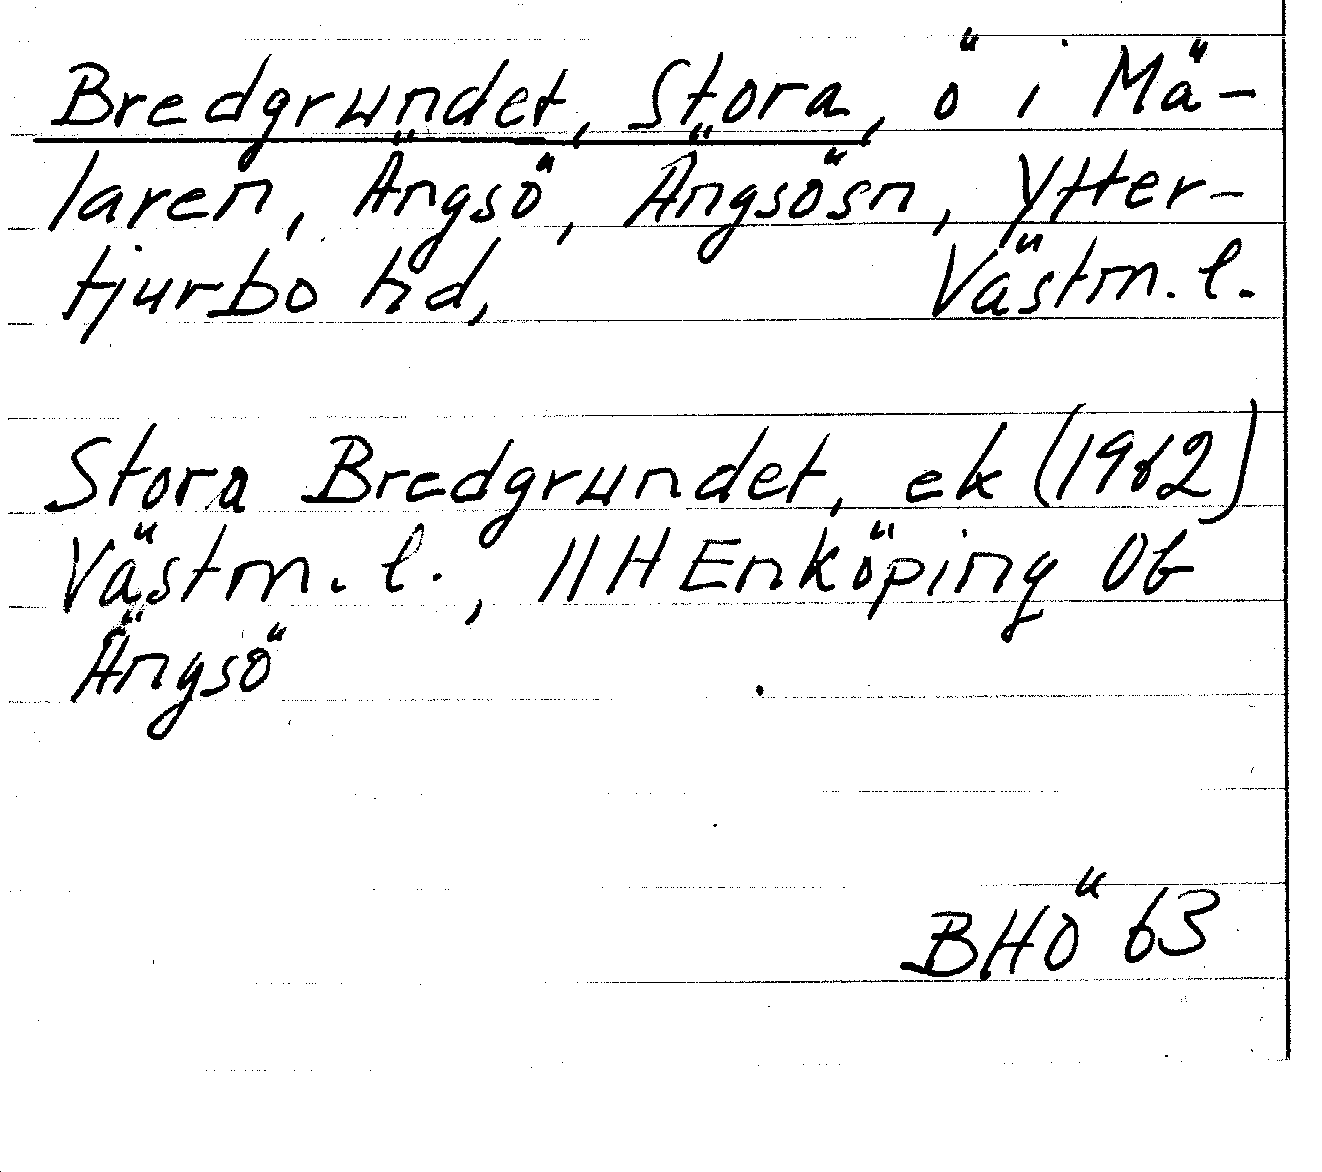 Bredgrundet, Stora, ö i Mä-
laren, Ängsö, Ängsösn, Ytter-
tjurbo hd, Västm. l.
Stora Bredgrundet, ek (1962)
Västm. l., 11H Enköping 0b
Ängsö
BHÖ 63